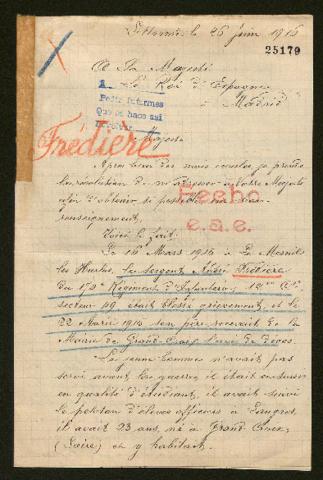 le 26 juin 1916
25179
A Sa Majesté
Le Roi d'Espagne
Madrid
Pedir informes
Fredière
Majesté
Après bien des mois écoulés je prends
la résolution de m'adresser à Votre Majesté
afin d'obtenir si possible
renseignement.
Fecho
Voici le fait.
e.a.e.
Le 16 Mars 1915 à Le Mesnil
les Hurlus, le Sergent André Fredière
du 172e Régiment d'Infanterie, 12me Cie
secteur était blessé grièvement et le
22 Mars 1915 son père recevait de la
Mairie de Grand-Croix l'avis de décès.
Ce jeune homme n'avait pas
servi avant la guerre il était
en qualité d'étudiant, il avait suivi
le peloton d'élèves officiers à Langres,
il avait 23 ans, né à Grand-Croix
(Loire) et y habitait.